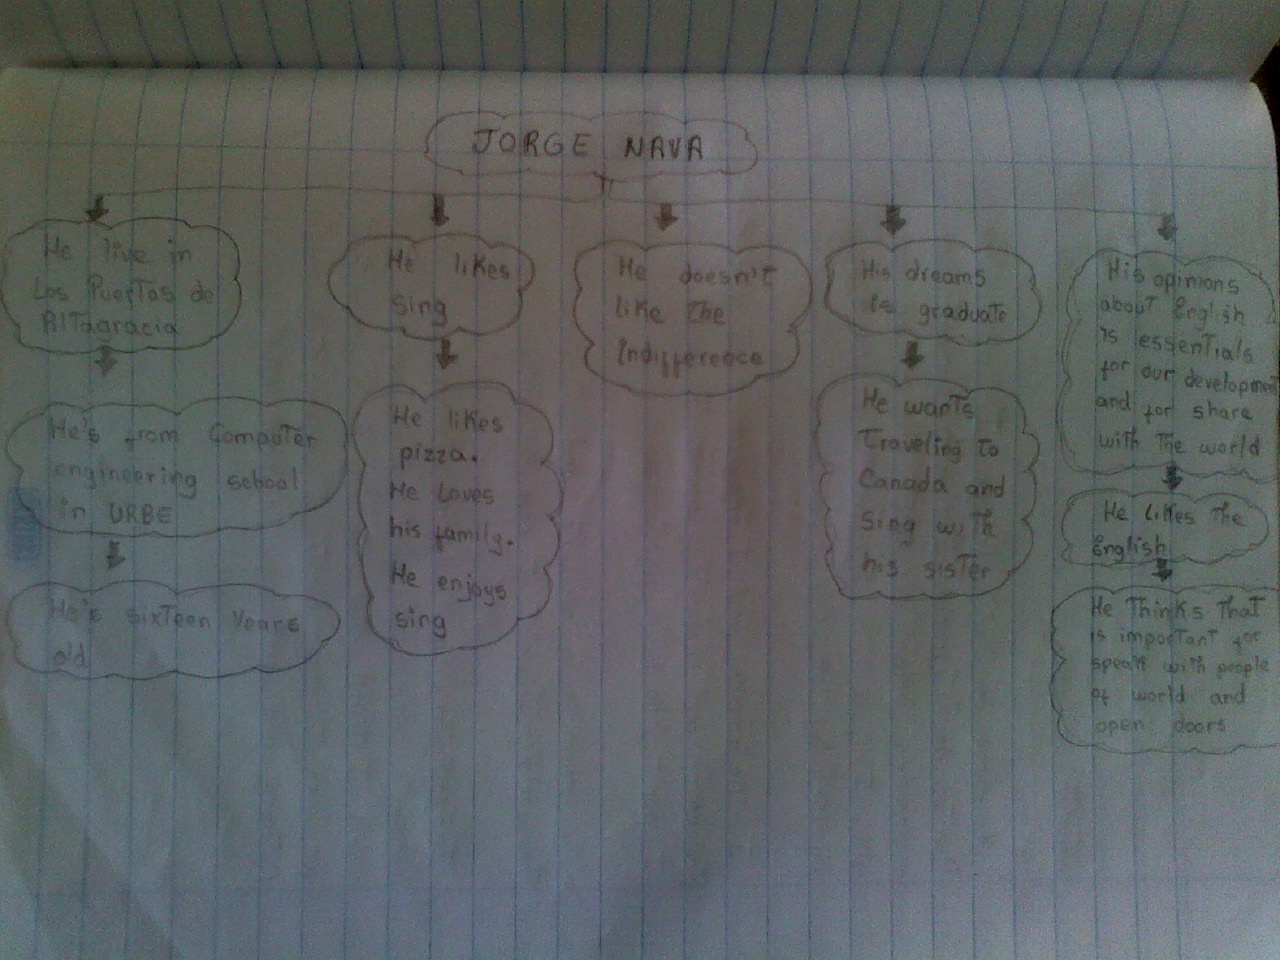 JORGE NAVA
He live in
Los Puertos de
Altagracia
He's from Computer
engineering school
in URBE
He's sixteen Years
old
He likes
sing
He likes
pizza.
He Loves
his family.
He enjoys
sing
He doesn't
like the
Indifference
His dreams
is graduate
He wants
Traveling to
Canada and
Sing with
his sister
His opinions
about English
is essentials
for our development
and for share
with the world
He Likes The
English
He Thinks that
is important for
speak with people
of world and
open doors